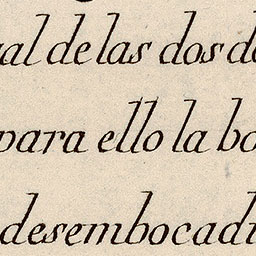 al de las dos de
para ello la bo
desembocadu